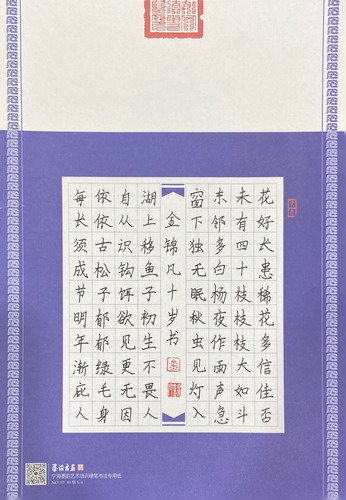 花好长患稀花多信佳否
未有四十枝枝枝大如斗
东邻多白杨夜作雨声急
窗下独无眠秋虫见灯入
金锦凡十岁书
湖上移鱼子初生不畏人
自从识钩饵欲见更无因
依依古松子郁郁绿毛身
每长须成节明年渐庇人
艺术培训硬笔书法专用纸